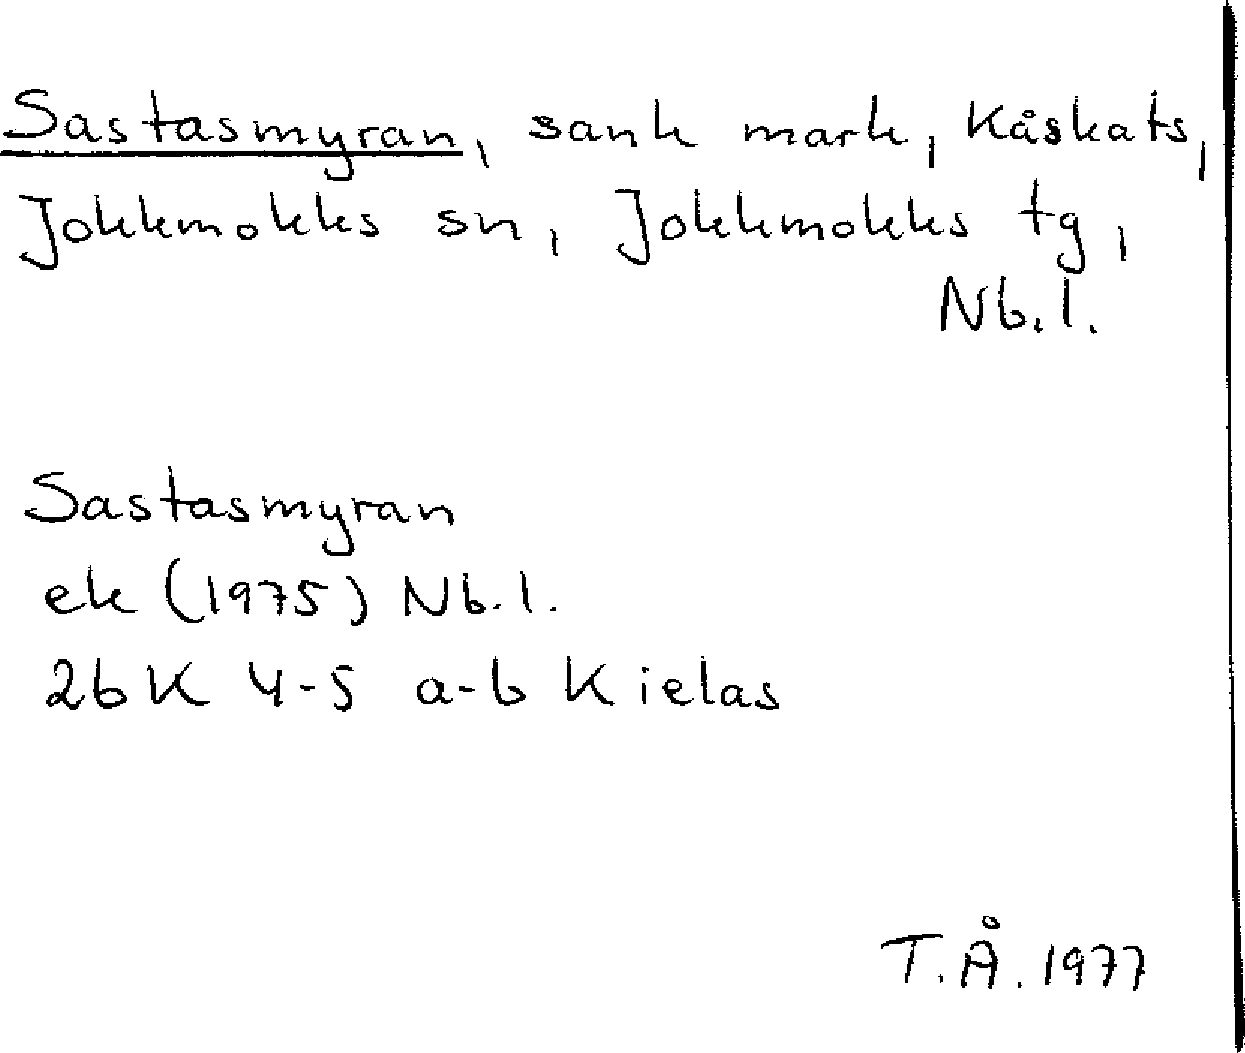 Sastasmyran, sank mark, Kåskats,
Jokkmokks sn, Jokkmokks tg,
Nb.l.
Sastasmyran
ek (1975) Nb.l.
26K 4-5 a-b Kielas
T.Å. 1977